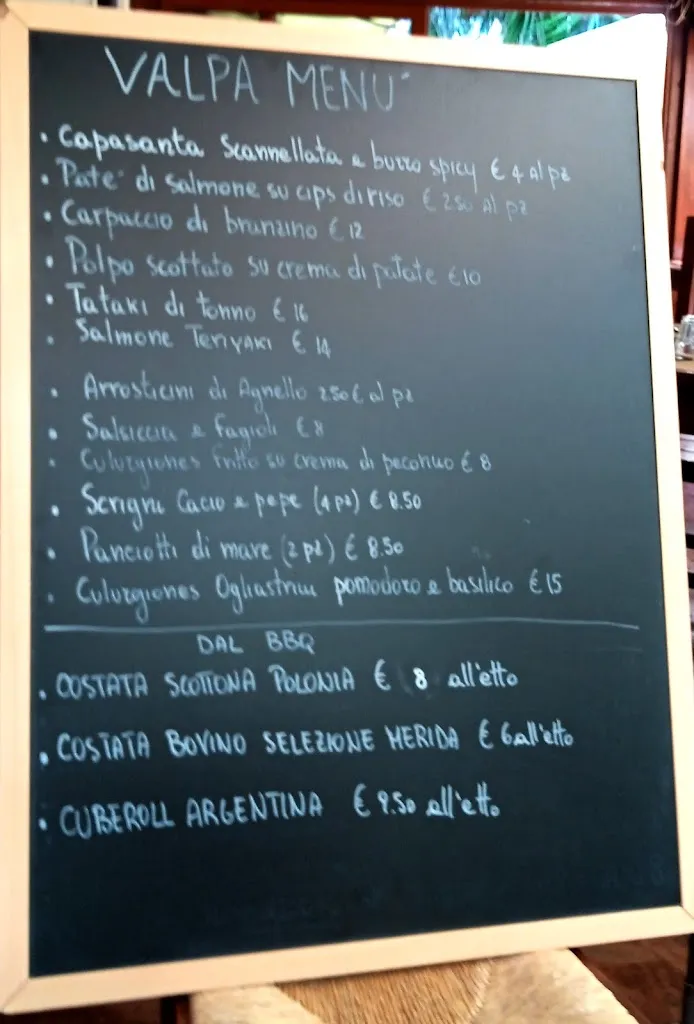 VALPA MENU'
• Capasanta Scannellata e burro spicy € 4 al pz
• Pate' di Salmone su cips di riso € 2.50 al pz
• Carpaccio di branzino € 12
• Polpo scottato su crema di patate €10
• Tataki di tonno € 16
• Salmone Teriyaki € 14
• Arrosticini di Agnello 2.50€ al pz
• Salsiccia e Fagioli €8
• Culurgiones fritto su crema di pecorino € 8
• Scrigni Cacio e pepe (4 pz) € 8.50
• Panciotti di mare (2 pz) € 8.50
• Culurgiones Ogliastrini pomodoro e basilico €15
DAL BBQ
• COSTATA SCOTTONA POLONIA € 8 all'etto
• COSTATA BOVINO SELEZIONE MERIDA € 6 all'etto
• CUBEROLL ARGENTINA € 9.50 all'etto